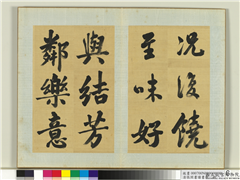 况復饒
至味好
與結芳
鄰樂意